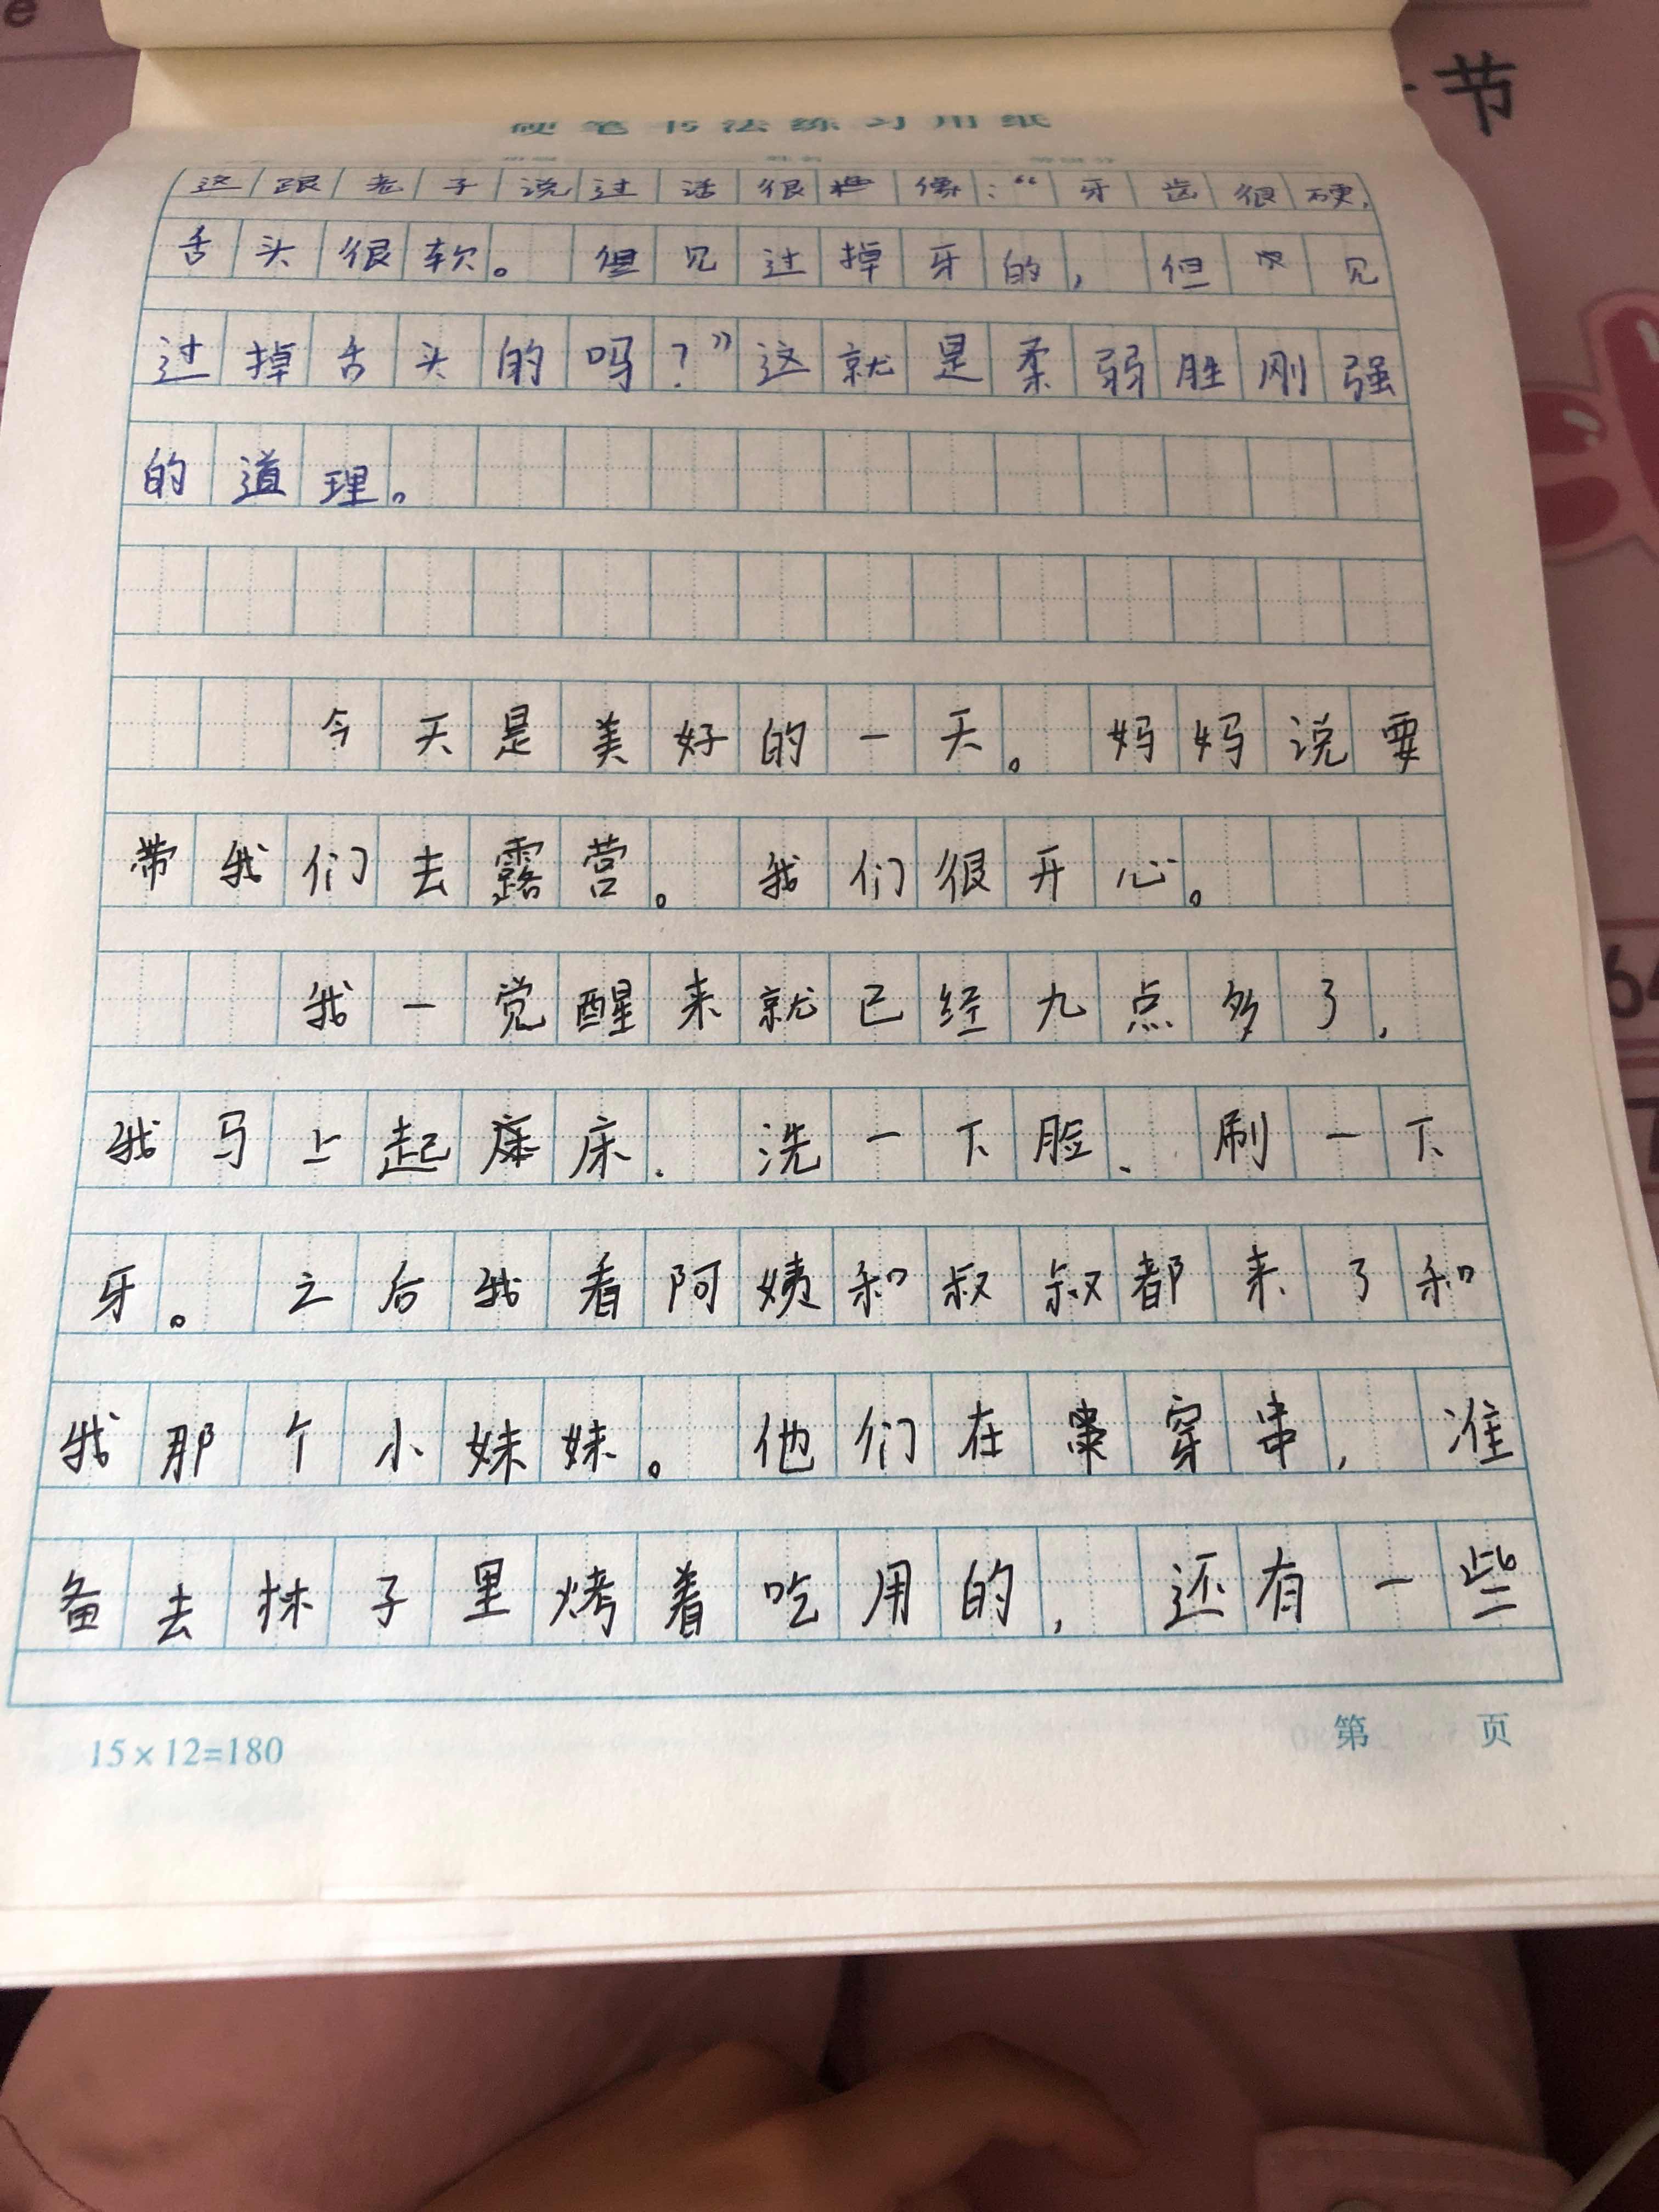 节
硬笔书法练习用纸
这跟老子说过话很像：“牙齿很硬，
舌头很软。但见过掉牙的，但见
过掉舌头的吗？”这就是柔弱胜刚强
的道理。
今天是美好的一天。妈妈说要
带我们去露营。我们很开心。
我一觉醒来就已经九点多了，
我马上起床、洗一下脸、刷一下
牙。之后我看阿姨和叔叔都来了和
我那个小妹妹。他们在穿串，准
备去林子里烤着吃用的，还有一些
15×12=180
第 页